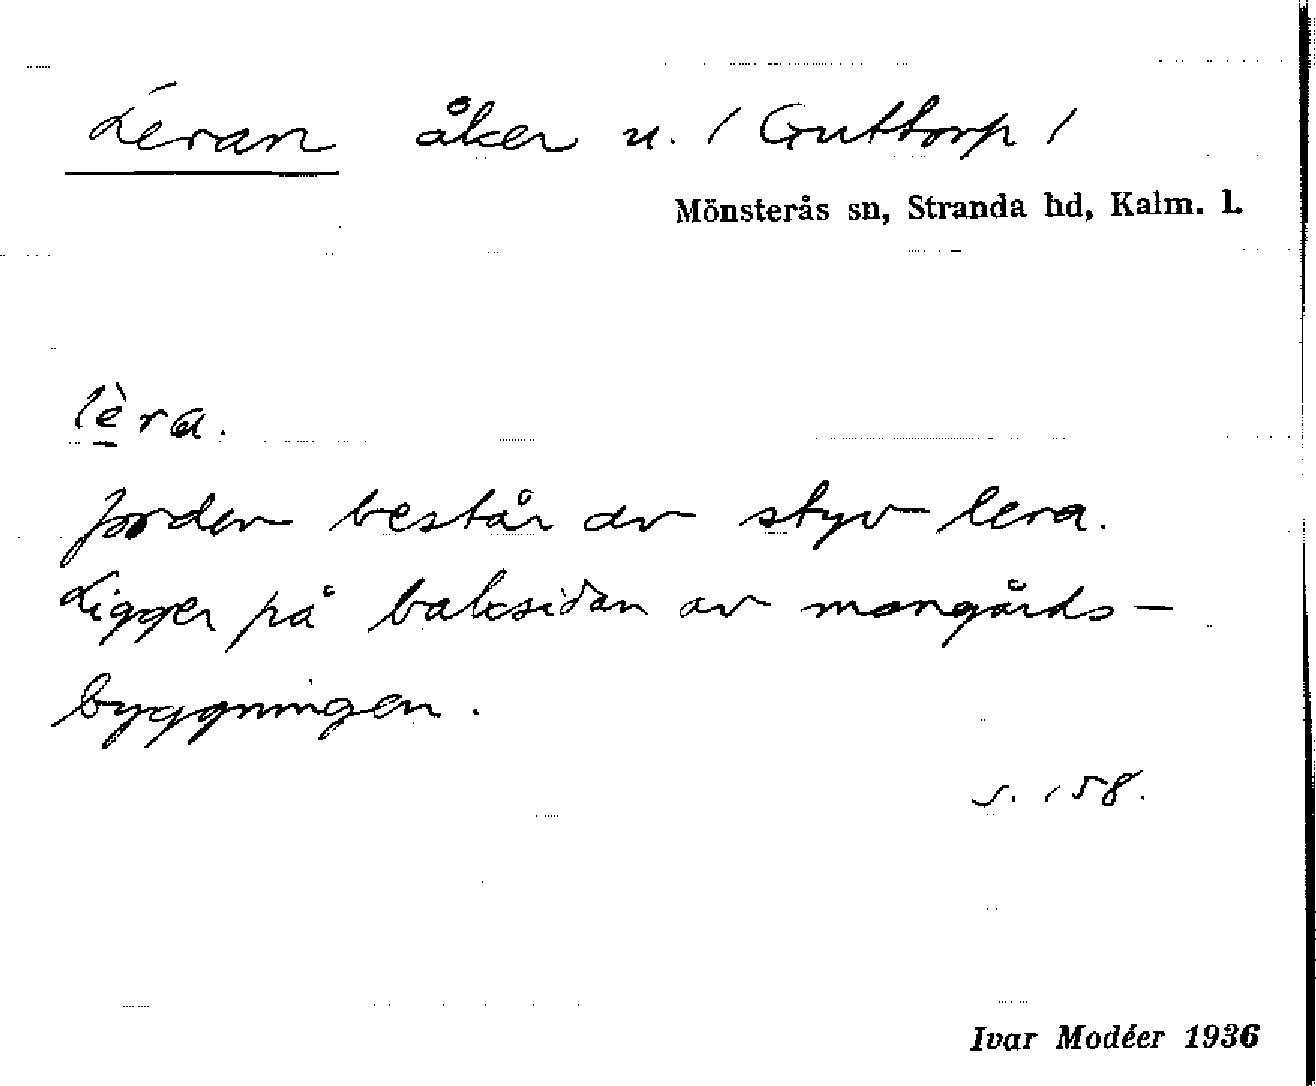 Leran åker u. / Guttorp /
Mönsterås sn, Stranda hd, Kalm. l.
lèra.
Jorden består av styv lera.
Ligger på baksidan av mangårds-
byggningen.
s. 158.
Ivar Modéer 1936